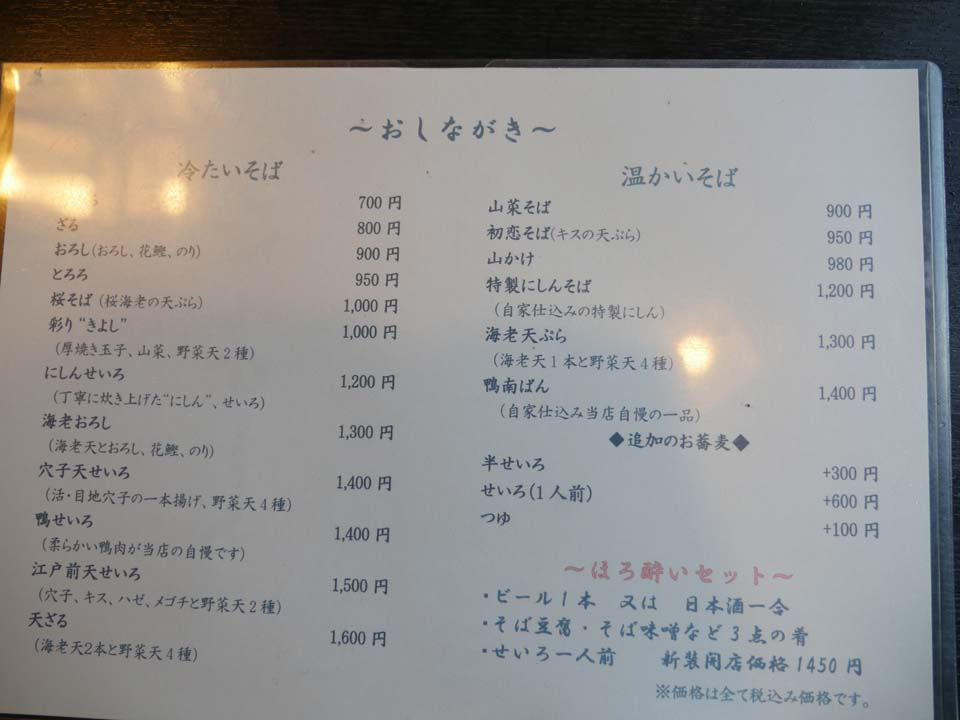 ～おしながき～
冷たいそば
700 円
ざる 800 円
おろし(おろし、花鰹、のり) 900 円
とろろ 950 円
桜そば (桜海老の天ぷら) 1,000 円
彩り“きよし” 1,000 円
(厚焼き玉子、山菜、野菜天2種)
にしんせいろ 1,200 円
(丁寧に炊き上げた“にしん”、せいろ)
海老おろし 1,300 円
(海老天とおろし、花鰹、のり)
穴子天せいろ 1,400 円
(活・目地穴子の一本揚げ、野菜天4種)
鴨せいろ 1,400 円
(柔らかい鴨肉が当店の自慢です)
江戸前天せいろ 1,500 円
(穴子、キス、ハゼ、メゴチと野菜天2種)
天ざる 1,600 円
(海老天2本と野菜天4種)
温かいそば
山菜そば 900 円
初恋そば(キスの天ぷら) 950 円
山かけ 980 円
特製にしんそば 1,200 円
(自家仕込みの特製にしん)
海老天ぷら 1,300 円
(海老天1本と野菜天4種)
鴨南ばん 1,400 円
(自家仕込み当店自慢の一品)
◆追加のお蕎麦◆
半せいろ +300 円
せいろ(1人前) +600 円
つゆ +100 円
～ほろ酔いセット～
・ビール1本 又は 日本酒一合
・そば豆腐・そば味噌など3点の肴
・せいろ一人前 新装開店価格1450円
※価格は全て税込み価格です。